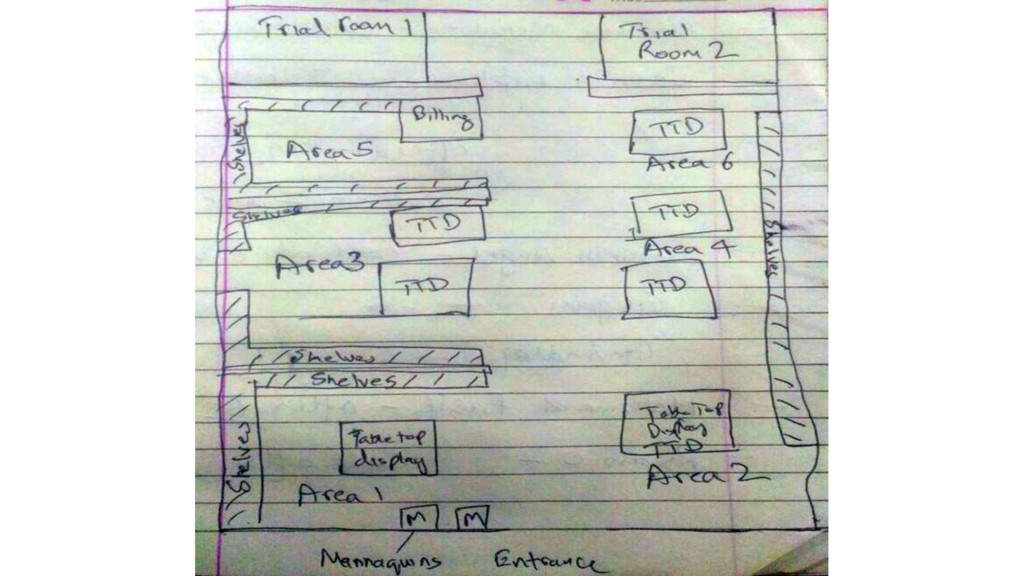 Trial room 1
Trial
Room 2
Billing
Shelves
Area 5
TTD
Area 6
Shelves
TTD
TTD
Area 4
Shelves
Area 3
TTD
TTD
Shelves
Shelves
Table top
display
Table Top
Display
TTD
Shelves
Area 1
Area 2
M
M
Mannaquins
Entrance